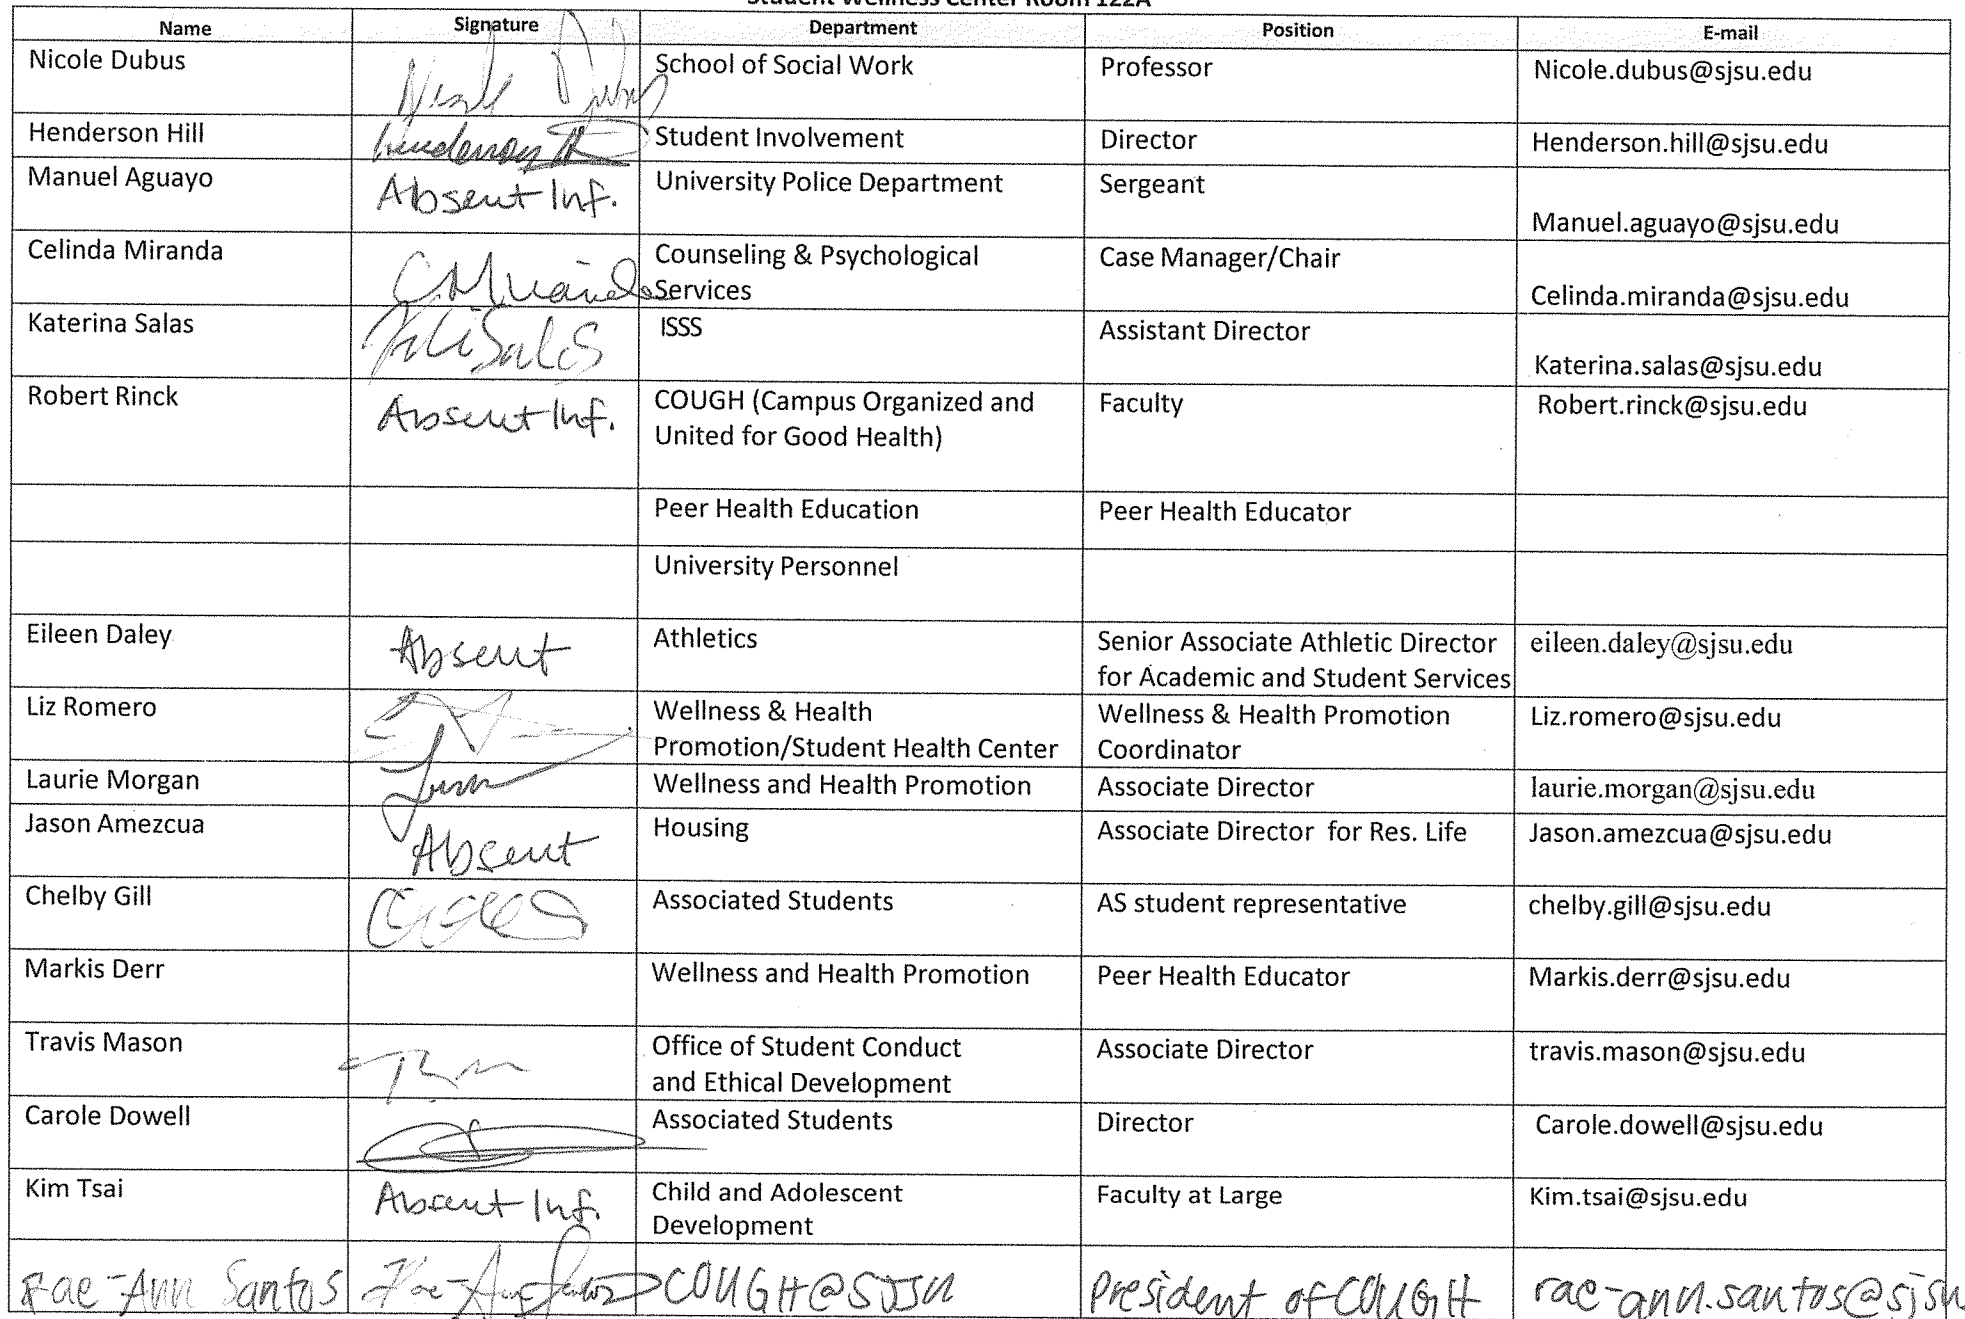 Student Wellness Center Room 122A
Name Signature Department Position E-mail
Nicole Dubus Nicole Dubus School of Social Work Professor Nicole.dubus@sjsu.edu
Henderson Hill Henderson Student Involvement Director Henderson.hill@sjsu.edu
Manuel Aguayo Absent Inf. University Police Department Sergeant
Manuel.aguayo@sjsu.edu
Celinda Miranda C. Miranda Counseling & Psychological Case Manager/Chair
Services Celinda.miranda@sjsu.edu
Katerina Salas Kati Salas ISSS Assistant Director
Katerina.salas@sjsu.edu
Robert Rinck Absent Inf. COUGH (Campus Organized and Faculty Robert.rinck@sjsu.edu
United for Good Health)
Peer Health Education Peer Health Educator
University Personnel
Eileen Daley Absent Athletics Senior Associate Athletic Director eileen.daley@sjsu.edu
for Academic and Student Services
Liz Romero Wellness & Health Wellness & Health Promotion Liz.romero@sjsu.edu
Promotion/Student Health Center Coordinator
Laurie Morgan Wellness and Health Promotion Associate Director laurie.morgan@sjsu.edu
Jason Amezcua Absent Housing Associate Director for Res. Life Jason.amezcua@sjsu.edu
Chelby Gill Associated Students AS student representative chelby.gill@sjsu.edu
Markis Derr Wellness and Health Promotion Peer Health Educator Markis.derr@sjsu.edu
Travis Mason Office of Student Conduct Associate Director travis.mason@sjsu.edu
and Ethical Development
Carole Dowell Associated Students Director Carole.dowell@sjsu.edu
Kim Tsai Absent Inf. Child and Adolescent Faculty at Large Kim.tsai@sjsu.edu
Development
Rae-Ann Santos Rae-Ann Santos COUGH@SJSU President of COUGH rae-ann.santos@sjsu